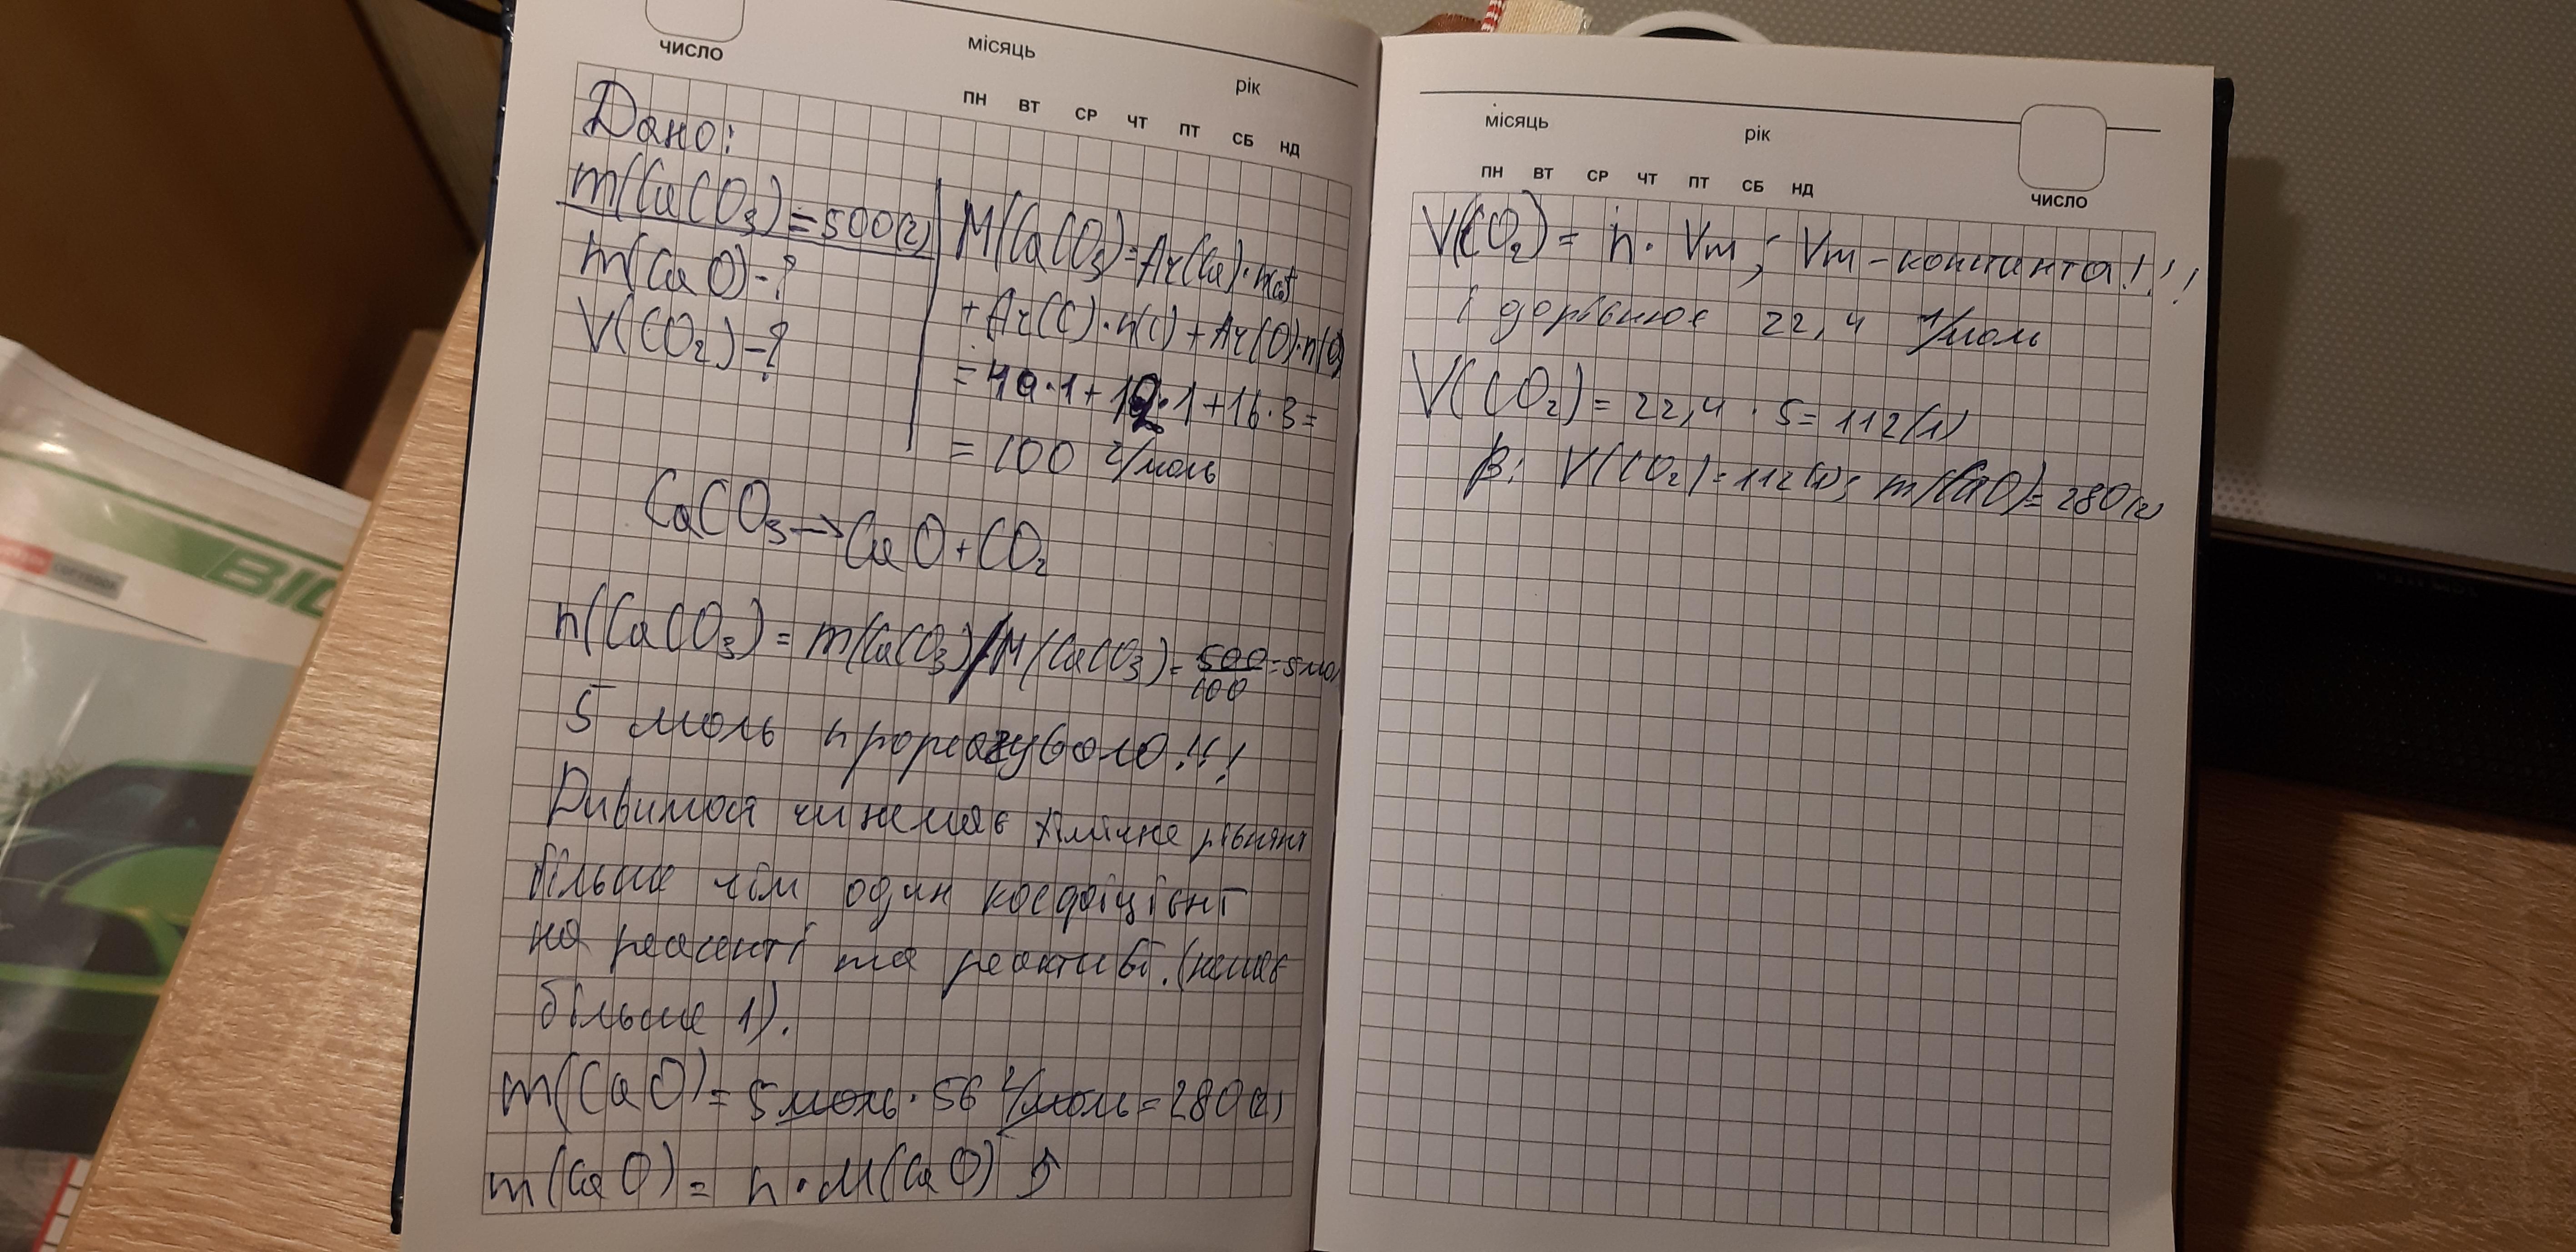 число
місяць
рік
ПН ВТ СР ЧТ ПТ СБ НД
Дано:
m(CaCO₃)=500(г)
m(CaO)-?
V(CO₂)-?
M(CaCO₃)=Ar(Ca)·n(Ca)+
+Ar(C)·n(C)+Ar(O)·n(O)
=40·1+12·1+16·3=
=100 г/моль
CaCO₃→CaO+CO₂
n(CaCO₃)=m(CaCO₃)/M(CaCO₃)=500/100=5мол
5 моль прореагувало!!!
Дивимося чи немає хімічне рівнян
більше чім один коефіціент
на реагенті та реактиві.(немає
більше 1).
m(CaO)=5моль·56 г/моль=280(г)
m(CaO)= n·M(CaO)
місяць
рік
ПН ВТ СР ЧТ ПТ СБ НД
число
V(CO₂)= n·Vm; Vm-константа!!!
і дорівнює 22,4 л/моль
V(CO₂)=22,4·5=112(л)
В: V(CO₂)=112(л); m(CaO)=280(г)
BIO